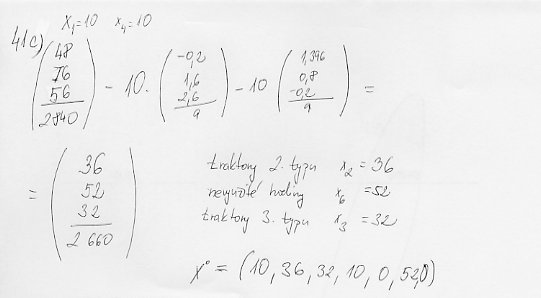 41c) x₁=10 x₄=10
(48 76 56 2840) - 10. (-0,2 1,6 2,6 9) - 10 (1,396 0,8 -0,2 9) =
= (36 52 32 2 660)
traktory 2. typu x₂ = 36
nevyužité hodiny x₆ = 52
traktory 3. typu x₃ = 32
x° = (10, 36, 32, 10, 0, 52, 0)